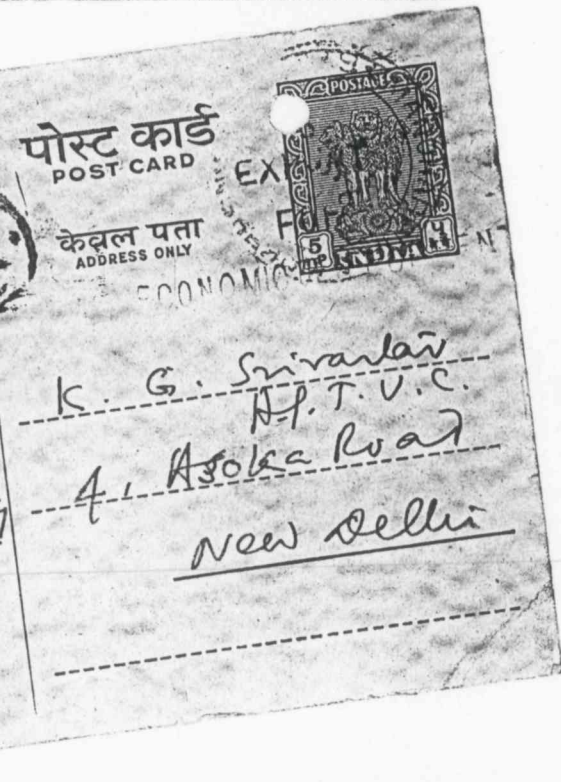 पोस्ट कार्ड
POST CARD
केवल पता
ADDRESS ONLY
POSTAGE
5
np
INDIA
ECONOMIC
K. G. Srivastav
A.I.T.U.C.
4, Asoka Road
New Delhi